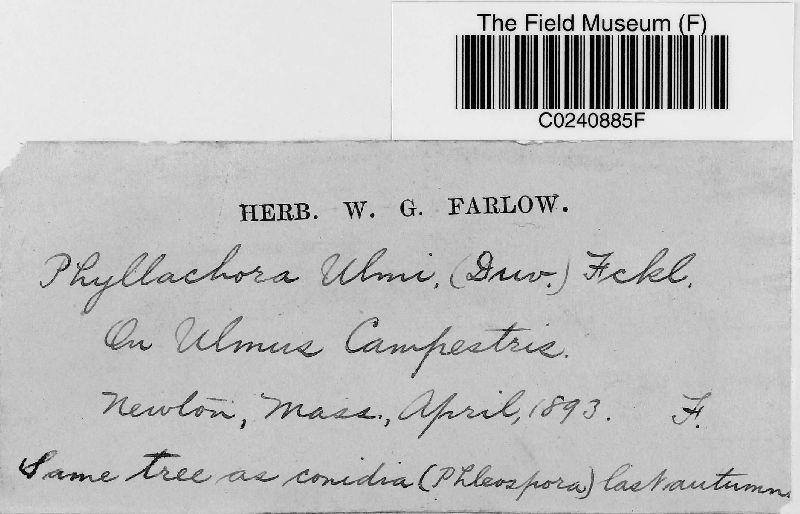 The Field Museum (F)
C0240885F
HERB. W. G. FARLOW.
Phyllachora Ulmi, (Duv.) Fckl.
On Ulmus Campestris.
Newton, Mass., April, 1893. F.
Same tree as conidia (Phleospora) last autumn.